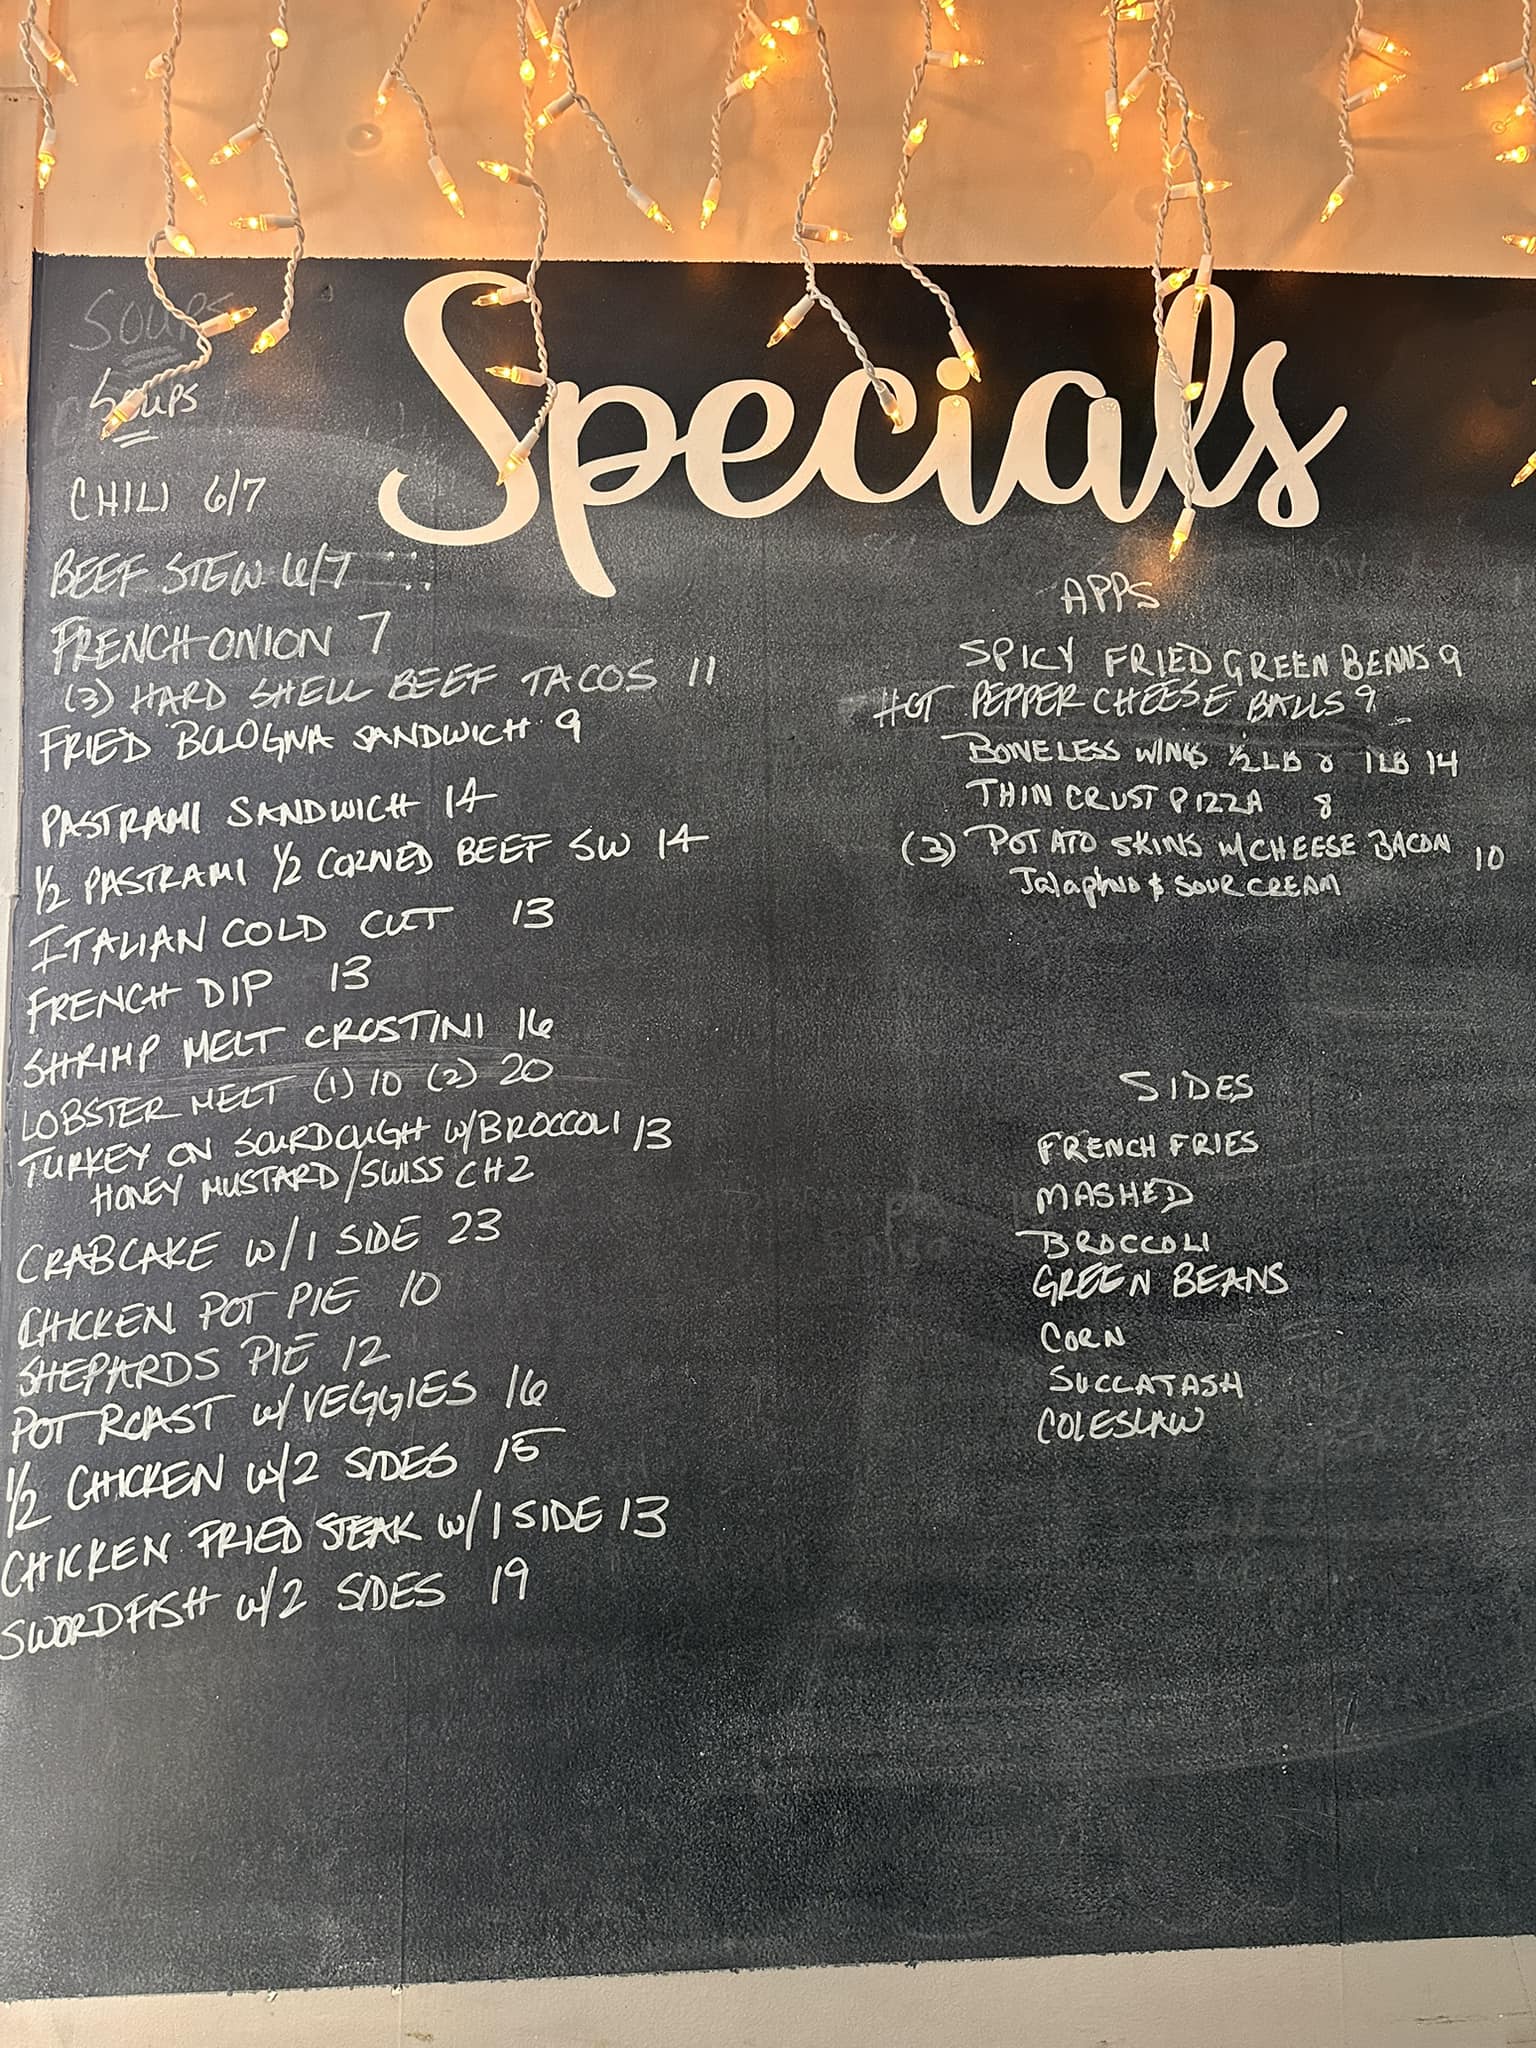 Specials
SOUPS
SOUPS
CHILI 6/7
BEEF STEW 6/7
FRENCH ONION 7
(3) HARD SHELL BEEF TACOS 11
FRIED BOLOGNA SANDWICH 9
PASTRAMI SANDWICH 14
1/2 PASTRAMI 1/2 CORNED BEEF SW 14
ITALIAN COLD CUT 13
FRENCH DIP 13
SHRIMP MELT CROSTINI 16
LOBSTER MELT (1) 10 (2) 20
TURKEY ON SOURDOUGH W/BROCCOLI 13
HONEY MUSTARD/SWISS CHZ
CRABCAKE W/1 SIDE 23
CHICKEN POT PIE 10
SHEPARDS PIE 12
POT ROAST W/VEGGIES 16
1/2 CHICKEN W/2 SIDES 15
CHICKEN FRIED STEAK W/1 SIDE 13
SWORDFISH W/2 SIDES 19
APPS
SPICY FRIED GREEN BEANS 9
HOT PEPPER CHEESE BALLS 9
BONELESS WINGS 1/2 LB 8 1LB 14
THIN CRUST PIZZA 8
(3) POTATO SKINS W/CHEESE BACON 10
Jalapino & SOUR CREAM
SIDES
FRENCH FRIES
MASHED
BROCCOLI
GREEN BEANS
CORN
SUCCATASH
COLESLAW